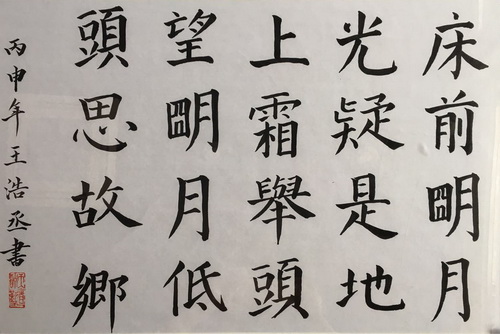 床前朙月
光疑是地
上霜舉頭
望朙月低
頭思故鄉
丙申年王浩丞書